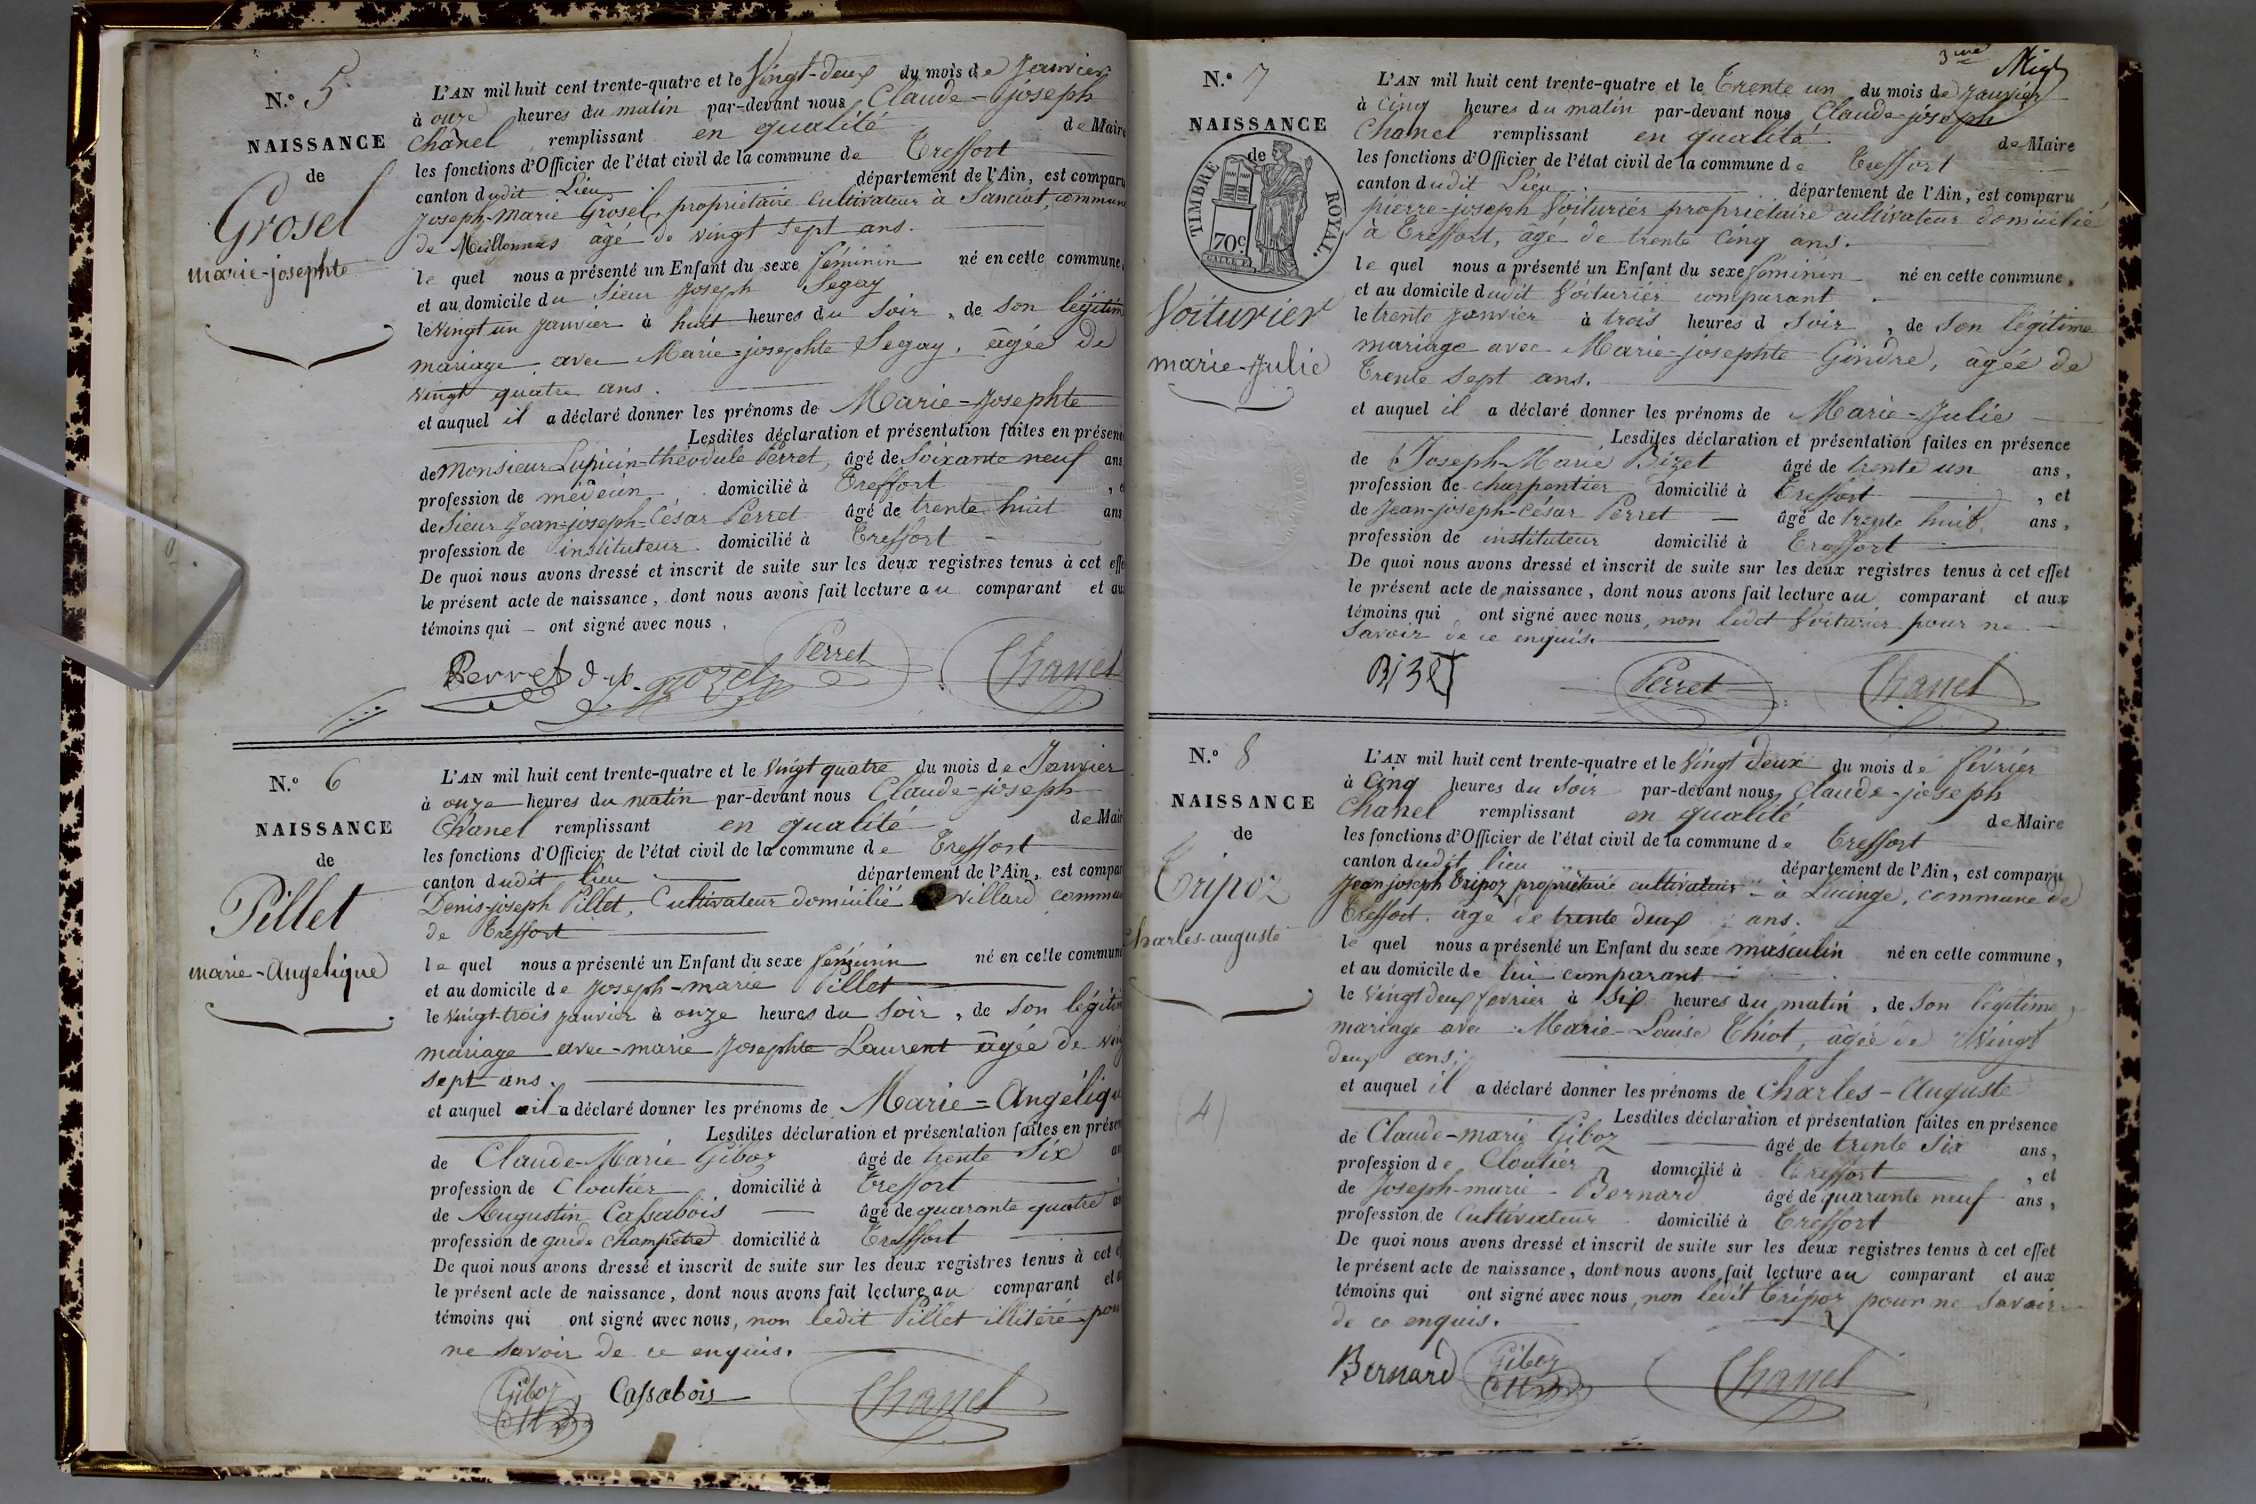 N.º 5
NAISSANCE
de
Grosel
marie-josephte
L'AN mil huit cent trente-quatre et le Vingt-deux du mois de Janvier
à onze heures du matin par-devant nous Claude-joseph
Chanel remplissant en qualité de Maire
les fonctions d'Officier de l'état civil de la commune de Treffort
canton dudit Lieu département de l'Ain, est comparu
Joseph-Marie Grosel, propriétaire Cultivateur à Sanciat, commune
de Meillonnas âgé de vingt sept ans.
le quel nous a présenté un Enfant du sexe féminin né en cette commune,
et au domicile du Sieur Joseph Segay
le vingt un janvier à huit heures du Soir, de son légitim
mariage avec Marie-josephte Segay, âgée de
vingt quatre ans.
et auquel il a déclaré donner les prénoms de Marie-Josephte
Lesdites déclaration et présentation faites en présen
de Monsieur Lupicin-théodule Perret, âgé de Soixante neuf ans
profession de médecin domicilié à Treffort
de Sieur Jean-joseph-César Perret âgé de trente huit ans
profession de instituteur domicilié à Treffort
De quoi nous avons dressé et inscrit de suite sur les deux registres tenus à cet effe
le présent acte de naissance, dont nous avons fait lecture au comparant et au
témoins qui ont signé avec nous.
Perret Perret Chanel
N.º 6
NAISSANCE
de
Pillet
marie-Angelique
L'AN mil huit cent trente-quatre et le Vingt quatre du mois de Janvier
à onze heures du matin par-devant nous Claude-joseph
Chanel remplissant en qualité de Mair
les fonctions d'Officier de l'état civil de la commune de Treffort
canton dudit lieu département de l'Ain, est compar
Denis-joseph Pillet, Cultivateur domicilié Villard commu
de Treffort
le quel nous a présenté un Enfant du sexe féminin né en cette commun
et au domicile de Joseph-marie Pillet
le vingt-trois janvier à onze heures du Soir, de son légiti
mariage avec marie Josephte Laurent âgée de vin
sept ans.
et auquel il a déclaré donner les prénoms de Marie-Angéliqu
Lesdites déclaration et présentation faites en présen
de Claude-Marie Giboz âgé de trente Six an
profession de Cloutier domicilié à Treffort
de Augustin Cassabois âgé de quarante quatre an
profession de garde Champetre domicilié à Treffort
De quoi nous avons dressé et inscrit de suite sur les deux registres tenus à cet e
le présent acte de naissance, dont nous avons fait lecture au comparant et a
témoins qui ont signé avec nous, non ledit Pillet illitéré pou
ne savoir de ce enquis.
Giboz Cassabois Chanel
3me
N.º 7
NAISSANCE
de
TIMBRE ROYAL.
70c
Voiturier
marie-Julie
L'AN mil huit cent trente-quatre et le Trente un du mois de Janvier
à Cinq heures du matin par-devant nous Claude-joseph
Chanel remplissant en qualité de Maire
les fonctions d'Officier de l'état civil de la commune de Treffort
canton dudit Lieu département de l'Ain, est comparu
pierre-joseph Voiturier propriétaire cultivateur domicilié
à Treffort, âgé de trente Cinq ans.
le quel nous a présenté un Enfant du sexe féminin né en cette commune,
et au domicile dudit Voiturier comparant
le trente janvier à trois heures d Soir, de son légitime
mariage avec Marie-josephte Gindre, âgée de
Trente Sept ans.
et auquel il a déclaré donner les prénoms de Marie-Julie
Lesdites déclaration et présentation faites en présence
de Joseph-Marie Bizet âgé de trente un ans,
profession de charpentier domicilié à Treffort, et
de Jean-joseph-César Perret âgé de trente huit ans,
profession de instituteur domicilié à Treffort
De quoi nous avons dressé et inscrit de suite sur les deux registres tenus à cet effet
le présent acte de naissance, dont nous avons fait lecture au comparant et aux
témoins qui ont signé avec nous, non ledit Voiturier pour ne
Savoir de ce enquis.
Bizet Perret Chanel
N.º 8
NAISSANCE
de
Tripoz
Charles-auguste
(4)
L'AN mil huit cent trente-quatre et le Vingt Deux du mois de février
à Cinq heures du Soir par-devant nous Claude-joseph
Chanel remplissant en qualité de Maire
les fonctions d'Officier de l'état civil de la commune de Treffort
canton dudit lieu département de l'Ain, est comparu
Jean joseph Tripoz propriétaire cultivateur à Lucinge, commune de
Treffort. âgé de trente deux ans.
le quel nous a présenté un Enfant du sexe masculin né en cette commune,
et au domicile de lui comparant
le Vingt deux février à six heures du matin, de son légitime
mariage avec Marie-Louise Thiot, âgée de Vingt
deux ans;
et auquel il a déclaré donner les prénoms de Charles-Auguste
Lesdites déclaration et présentation faites en présence
de Claude-marie Giboz âgé de trente Six ans,
profession de Cloutier domicilié à Treffort, et
de Joseph-marie Bernard âgé de quarante neuf ans,
profession de Cultivateur domicilié à Treffort
De quoi nous avons dressé et inscrit de suite sur les deux registres tenus à cet effet
le présent acte de naissance, dont nous avons fait lecture au comparant et aux
témoins qui ont signé avec nous, non ledit Tripoz pour ne Savoir
de ce enquis.
Bernard Giboz Chanel